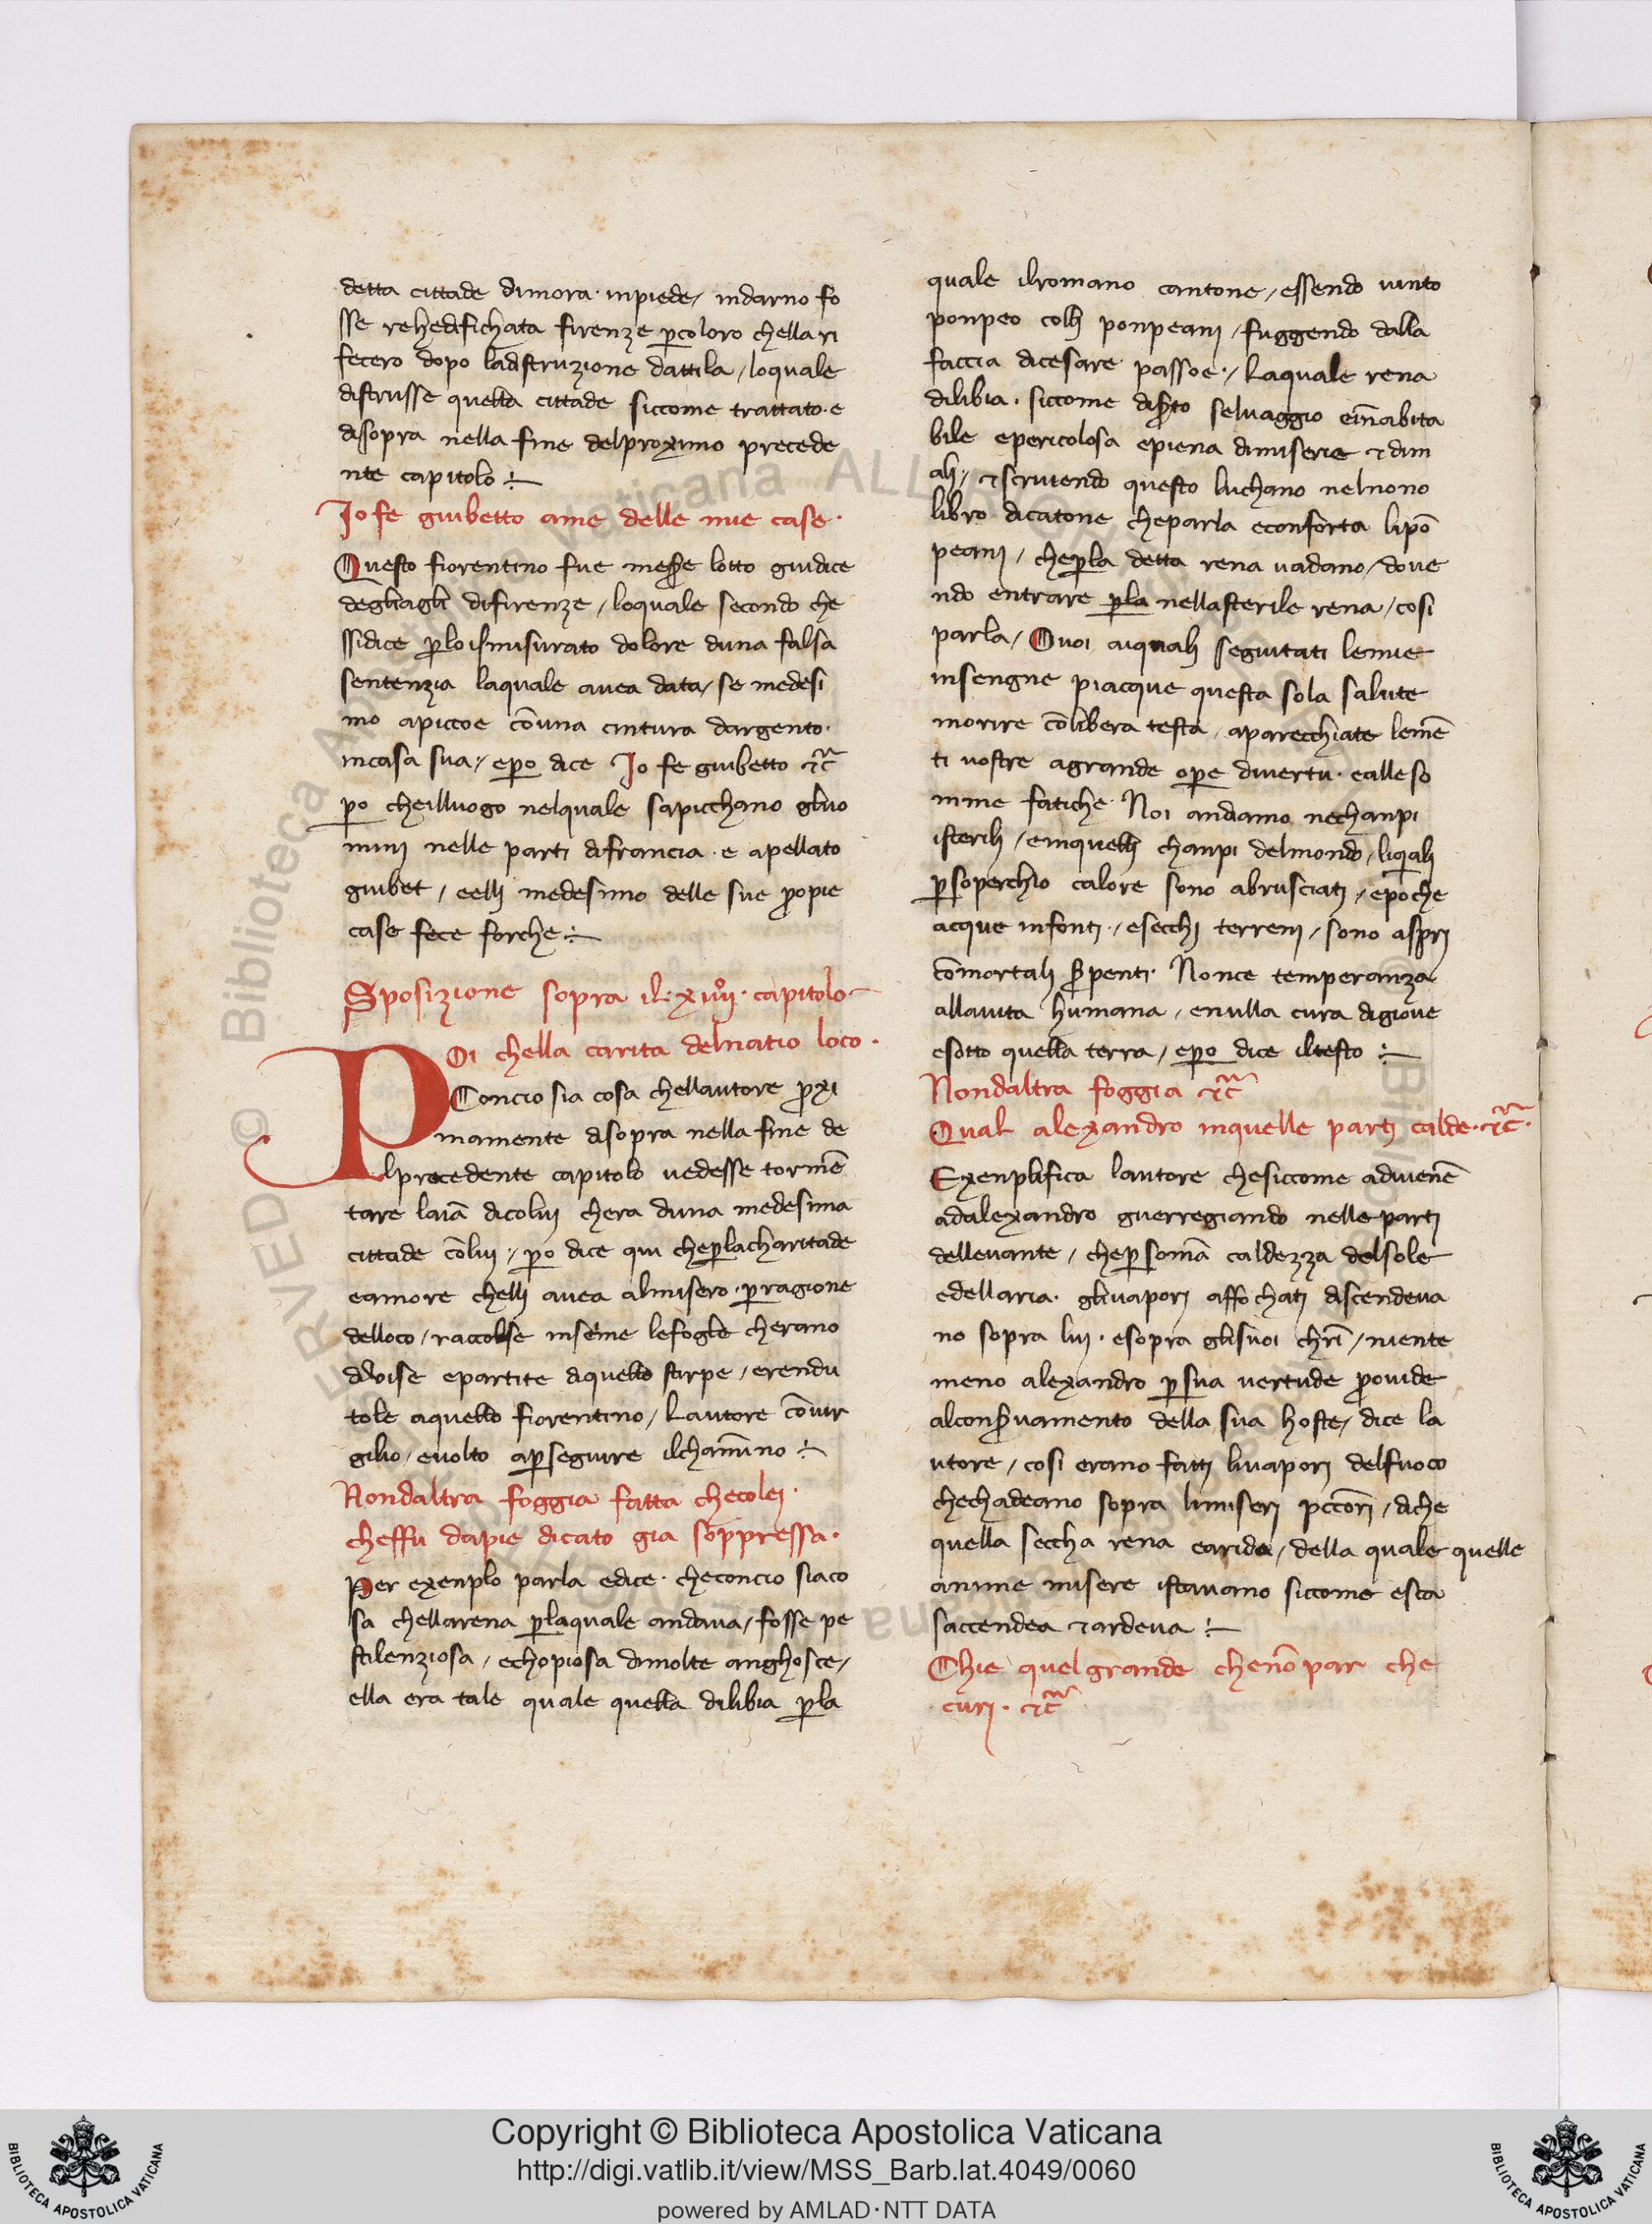 detta cittade dimora· inpiede / indarno fo
sse rehedifichata firenze ꝑcoloro chella ri
fecero dopo ladistruzione dattila / loquale
distrusse quella cittade siccome trattato· e
disopra nella fine delproximo precede
nte capitolo ÷
Io fe giubetto ame delle mie case·
Questo fiorentino fue mesere lotto giudice
degliagli difirenze / loquale secondo che
ssidice ꝑloismisurato dolore duna falsa
sentenzia laquale auea data / se medesi
mo apiccoe cōuna cintura dargento·
incasa sua / eꝑo dice Io fe giubetto ⁊c̃
ꝑo cheilluogo nelquale sapicchano gliuo
mini nelle parti difrancia· e apellato
giubet / eelli medesimo delle sue ꝓpie
case fece forche ÷
Sposizione sopra il·xiiijº· capitolo
Poi chella carita delnatio loco·
Concio sia cosa chellautore ꝓxi
mamente disopra nella fine de
lprecedente capitolo uedesse tormē
tare laiā dicolui chera duna medesima
cittade cōlui / ꝑo dice qui cheꝑlacharitade
eamore chelli auea almisero· ꝑragione
delloco / raccolse inseme lefoglie cherano
diuise epartite daquello sterpe / erendu
tole aquello fiorentino / Lautore cōuir
gilio / euolto aꝑseguire ilchamino ÷
Nondaltra foggia fatta checolei·
cheffu dapie dicato gia soppressa·
Per exenplo parla edice· checoncio siaco
sa chellarena ꝑlaquale andaua / fosse pe
stilenziosa / echopiosa dimolte anghosce /
ella era tale quale quella dilibia ꝑla
quale ilromano cantone / essendo uinto
ponpeo colli ponpeani / fuggendo dalla
faccia dicesare passoe· / Laquale rena
dilibia· siccome diserto seluaggio einabita
bile epericolosa epiena dimiserie ⁊ dim
ali / ⁊ scriuendo questo luchano nelnono
libro dicatone cheparla econforta lipō
peani / cheꝑla detta rena uadano / doue
ndo entrare ꝑla nellasterile rena / cosi
parla / Ouoi aiquali seguitati lemie
insengne piacque questa sola salute
morire cōlibera testa / aparecchiate lemē
ti uostre agrande oꝑe diuertu· ealleso
mme fatiche· Noi andiamo nechanpi
isterili / einquelli chanpi delmondo / liquali
ꝑsoperchio calore sono abrusciati / epoche
acque infonti· / esecchi terreni / sono aspri
cōmortali serpenti· Nonce temperanza
allauita humana / enulla cura digioue
esotto quella terra / eꝑo dice iltesto ÷
Nondaltra foggia ⁊c̃
Qual alexandro inquelle parti calde· ⁊c̃·
Exenplifica lautore chesiccome adiuenē
adalexandro guerregiando nelleparti
delleuante / cheꝑ somā caldezza delsole
edellaria· gliuapori affochati discendeua
no sopra lui· esopra glisuoi chrī / niente
meno alexandro ꝑsua uertude ꝓuide
alconseruamento della sua hoste / dice la
utore / cosi erano fatti liuapori delfuoco
chechadeano sopra limiseri pcc̄ori / diche
quella seccha rena earida / della quale quelle
anime misere istauano siccome esca
saccendea ⁊ ardeua ÷
Chie quel grande chenō par che
curi· ⁊c̃
Copyright © Biblioteca Apostolica Vaticana
http://digi.vatlib.it/view/MSS_Barb.lat.4049/0060
powered by AMLAD·NTT DATA
BIBLIOTECA APOSTOLICA VATICANA
BIBLIOTECA APOSTOLICA VATICANA